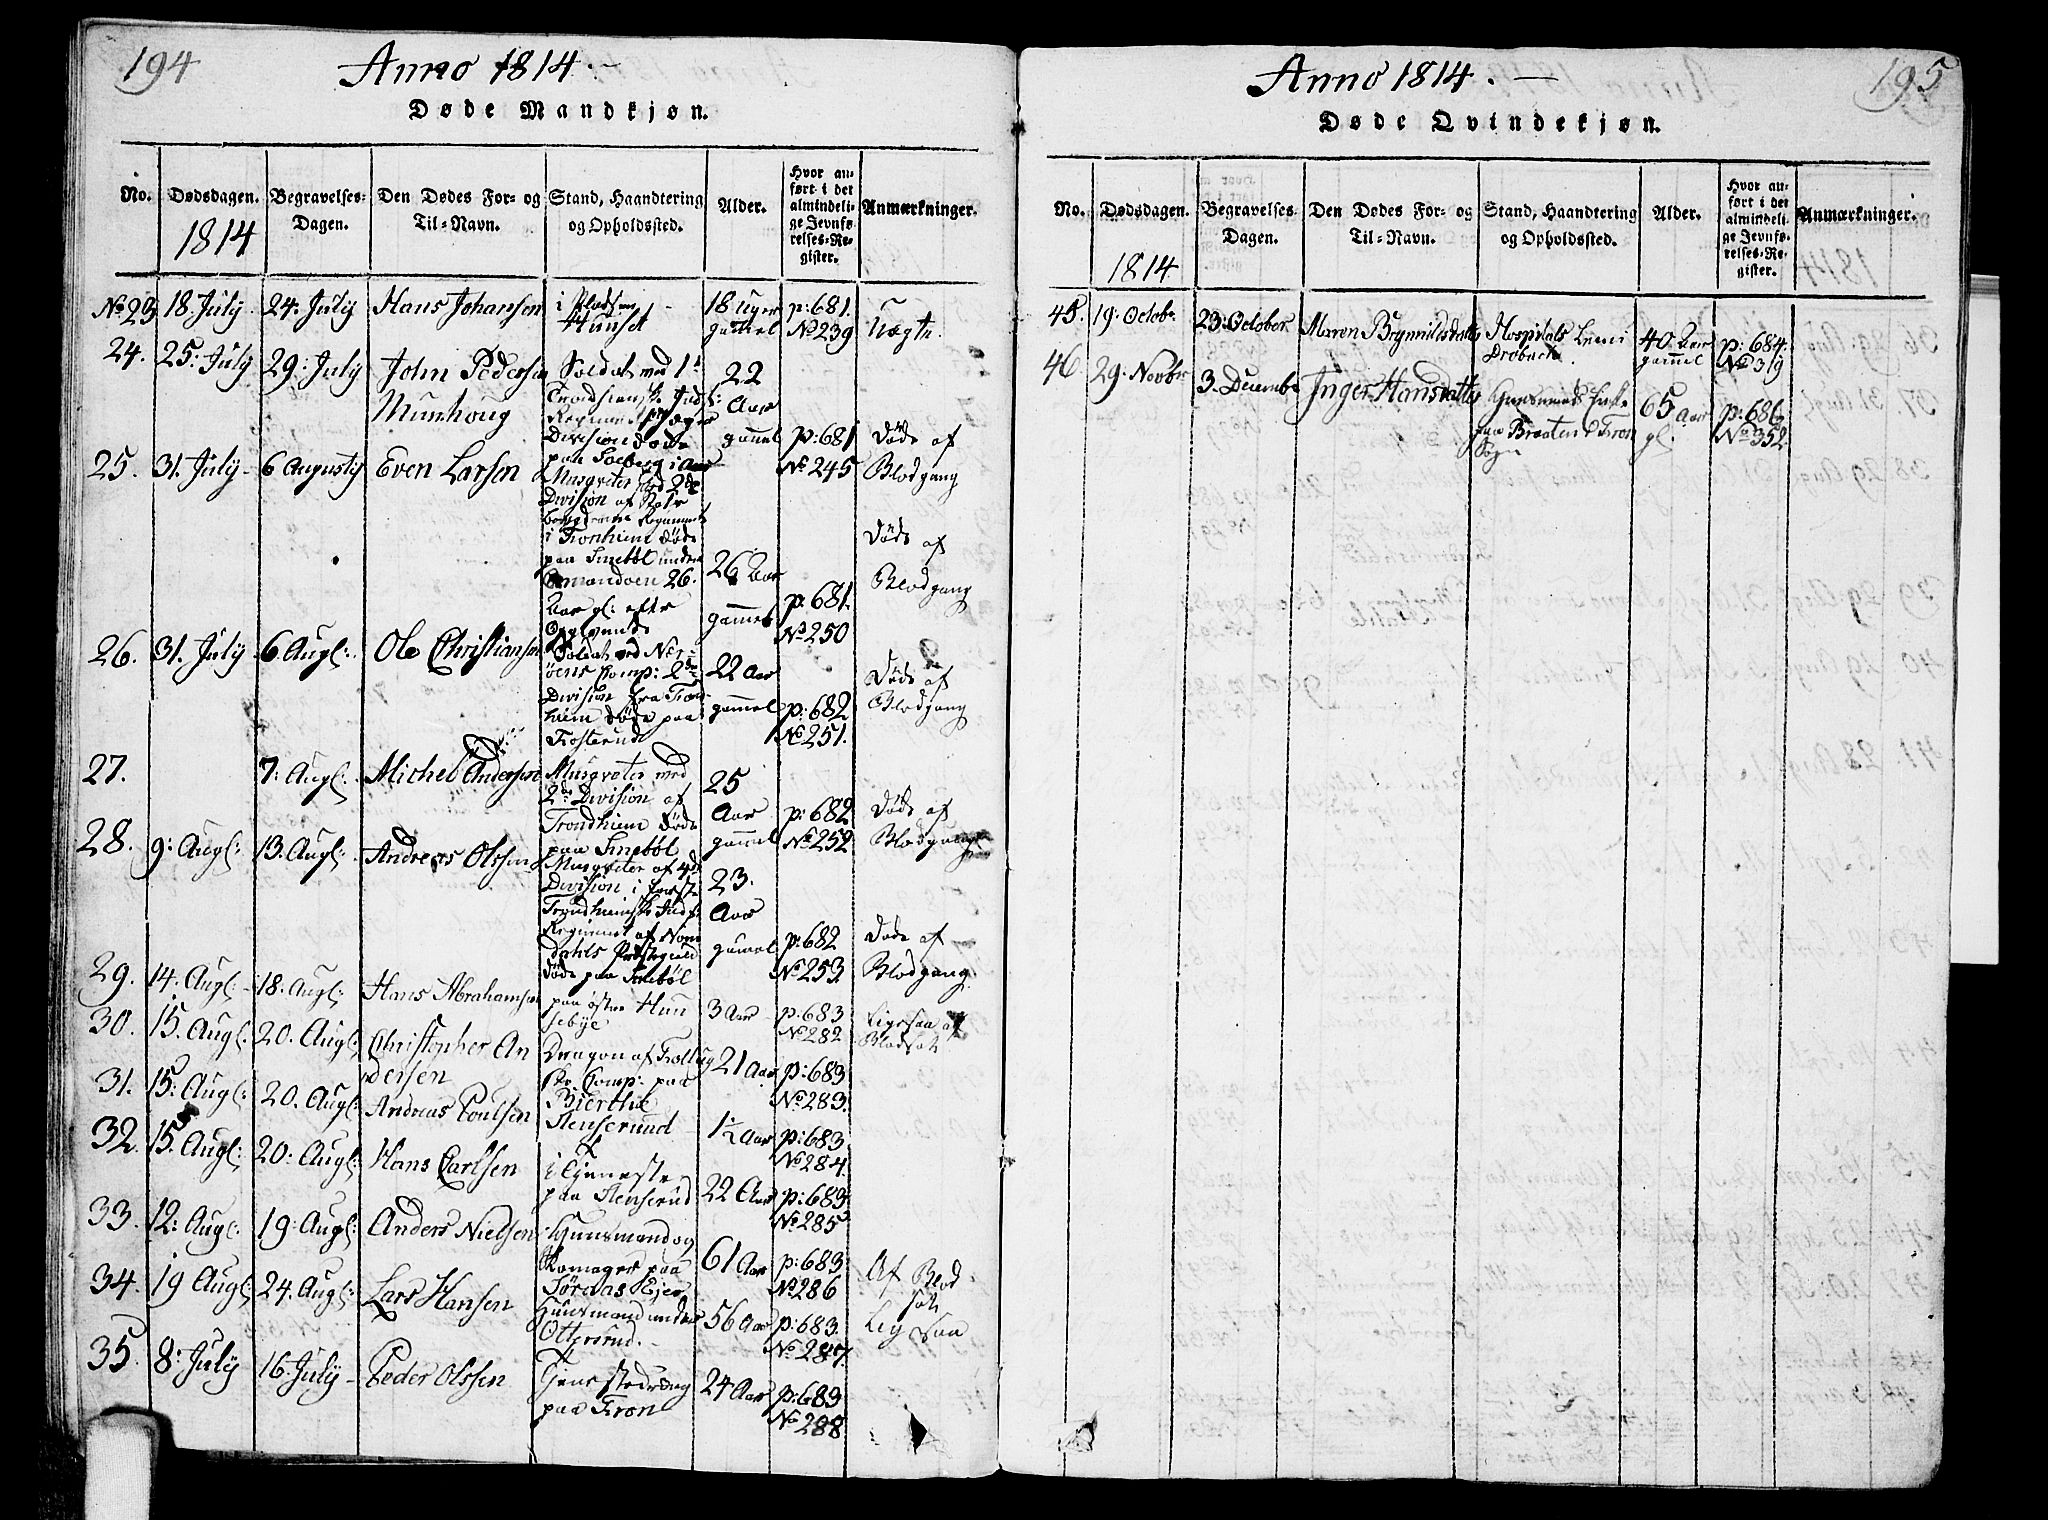 194
Anno 1814.
Døde Mandkjøn.
No.
Dødsdagen.
1814
Begravelses-
Dagen.
Den Dødes For- og
Til-Navn.
Stand, Haandtering
og Opholdssted.
Alder.
Hvor an-
ført i det
almindeli-
ge Jevnfø-
relses-Re-
gister.
Anmærkninger.
No 23 18. July 24. July Hans Johansen
i Pladsen
Hunset
18 Uger
gammel
p: 681.
No 239
24. 25: July 29: July John Pedersen
Munhoug
Soldat med 1ste
Trondhiemske Inds:
Regiment
Division døde
paa Solberg i Aas
22
Aar
gammel
p: 681
No 245
Døde af
Blodgang
25. 31. July 6 Augusty Even Larsen
Musqveter ved 2de
Division af
Regiment
i Tronhiem døde
paa Smebøl under
26.
Aar gl: efter
Opgivende
26 Aar
gammel
p: 681.
No 250
Døde af
Blodgang
26. 31. July 6 Augl: Ole Christiansen
Soldat ved Nær-
öens Comp: 2de
Division fra Tron-
hiem døde paa
Fosterud
22 Aar
gammel
p: 682
No 251.
Døde af
Blodgang
27. 7: Augl: Michel Andersen
Musqveter med
2de Division af
Trondhiem døde
paa Smebøl
25
Aar
gammel
p: 682
No 252
Døde af
Blodgang
28. 9: Augl: 13. Augl: Andreas Olssen
Musqveter af 4de
Division i første
Trondhiemske Inds:
Regiment af Nom
dahls Præstegield
døde paa Smebøl
23.
Aar
gammel
p: 682
No 253.
Døde af
Blodgang
29. 14. Augl: 18. Augl: Hans Abrahamsen
paa østre Hun
sebye
3 Aar
p: 683
No 282
Ligesaa af
Blodsot
30. 15. Augl: 20. Augl: Christopher An
dersen
Dragon af Follug
ske Comp: paa
Bierche
21 Aar
p: 683
No 283.
31. 15: Augl: 20. Augl: Andreas Poulsen
Stenserund
1½ Aar
p: 683
No 284.
32. 15. Augl: 20: Augl: Hans Carlsen
i Tjeneste
paa Stenserud
22 Aar
p: 683
No 285
33. 12: Augl: 19: Augl: Anders Nielsen
Huusmand og
Skomager paa
Søraas Ejer
61 Aar
p: 683
No 286
34. 19 Augl: 24. Augl: Lars Hansen
Huusmand under
Ottersrud.
56 Aar
p: 683.
No 287.
Af Blod
sot
Lig saa
35. 8: July 16. July Peder Olssen
Tjenestedreng
paa Fron
24 Aar
p: 683
No 288
195
Anno 1814.
Døde Qvindekjøn.
No.
Dødsdagen.
1814
Begravelses-
Dagen.
Den Dødes For- og
Til-Navn.
Stand, Haandtering
og Opholdssted.
Alder.
Hvor an-
ført i det
almindeli-
ge Jevnfø-
relses-Re-
gister.
Anmærkninger.
45. 19. Octobr. 23. October Maren Brynnildsdatter
Hospitals Lem i
Drobach
40 Aar
gammel
p: 684
No 319
46 29. Novbr. 3. December Inger Hansdatter
Huusmands Enke
paa Braaten i Fron
Sogn
65 Aar
gl.
p: 686
No 352